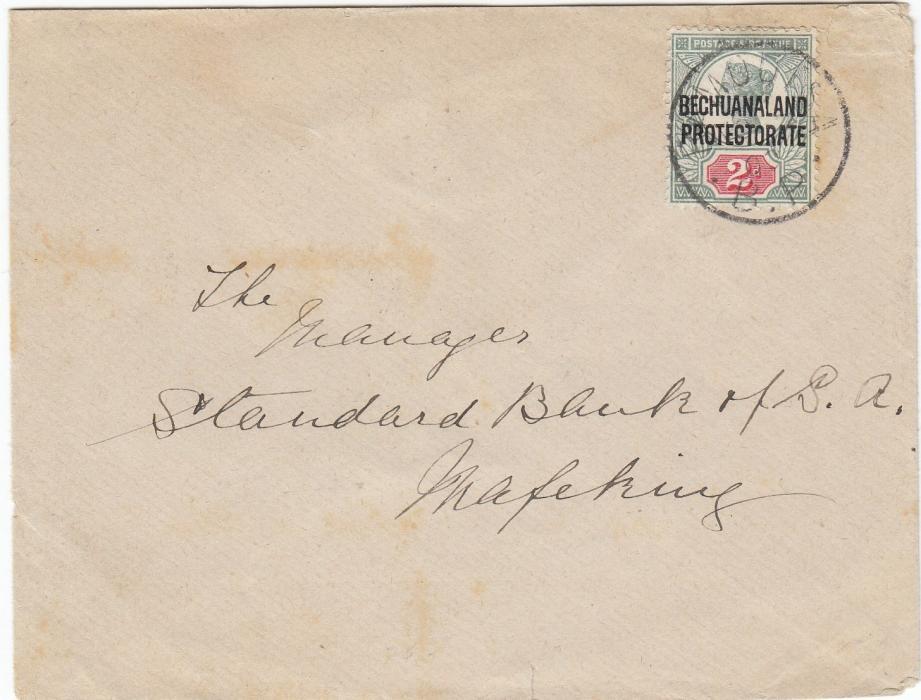 POSTAGE & REVENUE
BECHUANALAND
PROTECTORATE
2d
B.P.
The
Manager
Standard Bank of S. A.
Mafeking